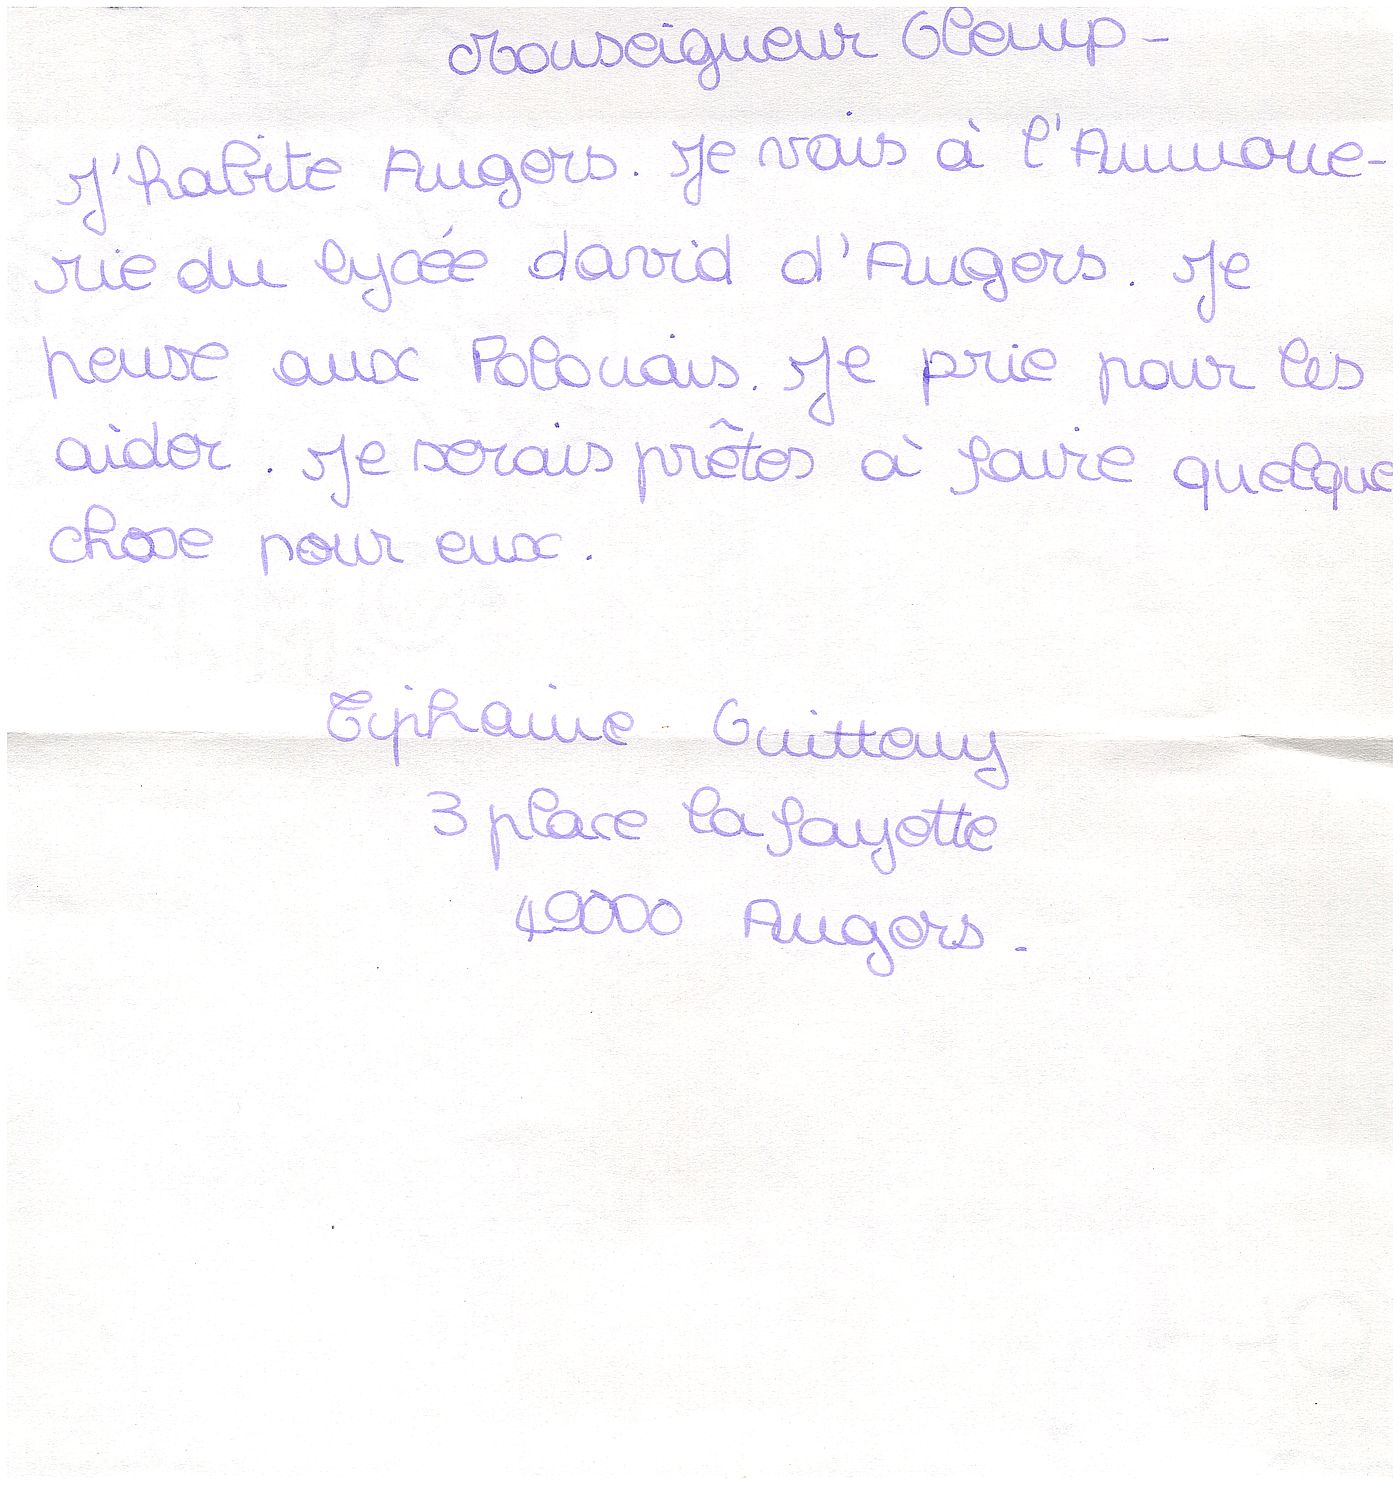 Monseigneur Glemp -
J'habite Angers. Je vais à l'Aumone-
rie du lycée david d'Angers. Je
pense aux Polonais. Je prie pour les
aider. Je serais prêtes à faire quelque
chose pour eux.
Tiphaine Guittany
3 place la fayette
49000 Angers.